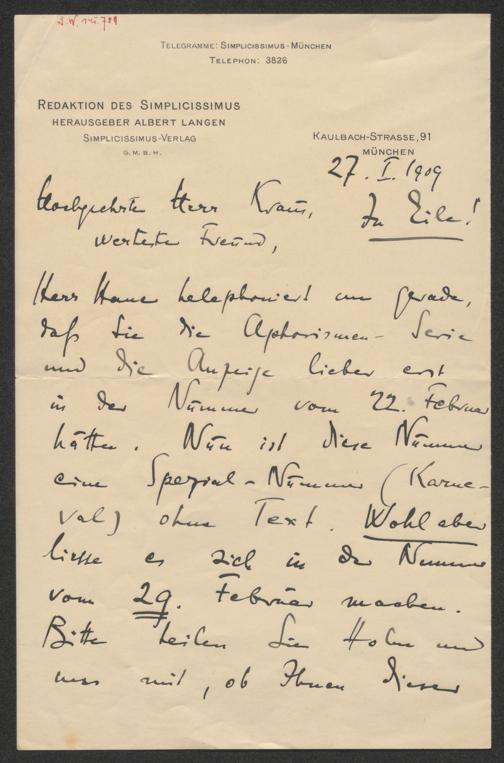 TELEGRAMME: SIMPLICISSIMUS-MÜNCHEN
TELEPHON: 3826
REDAKTION DES SIMPLICISSIMUS
HERAUSGEBER ALBERT LANGEN
SIMPLICISSIMUS-VERLAG
G. M. B. H.
KAULBACH-STRASSE, 91
MÜNCHEN
27. I. 1909
Hochgeehrter Herr Kraus,
In Eile!
werter Freund,
Herr telephoniert gerade,
daß Sie die Aphorismen-Serie
und die Anzeige lieber erst
in der Nummer vom 22. Februar
hätten. Nun ist diese Nummer
eine Spezial-Nummer (Karne-
val) ohne Text. Wohl aber
liesse es sich in der Nummer
vom 29. Februar machen.
Bitte teilen Sie Holm und
uns mit, ob Ihnen dieser